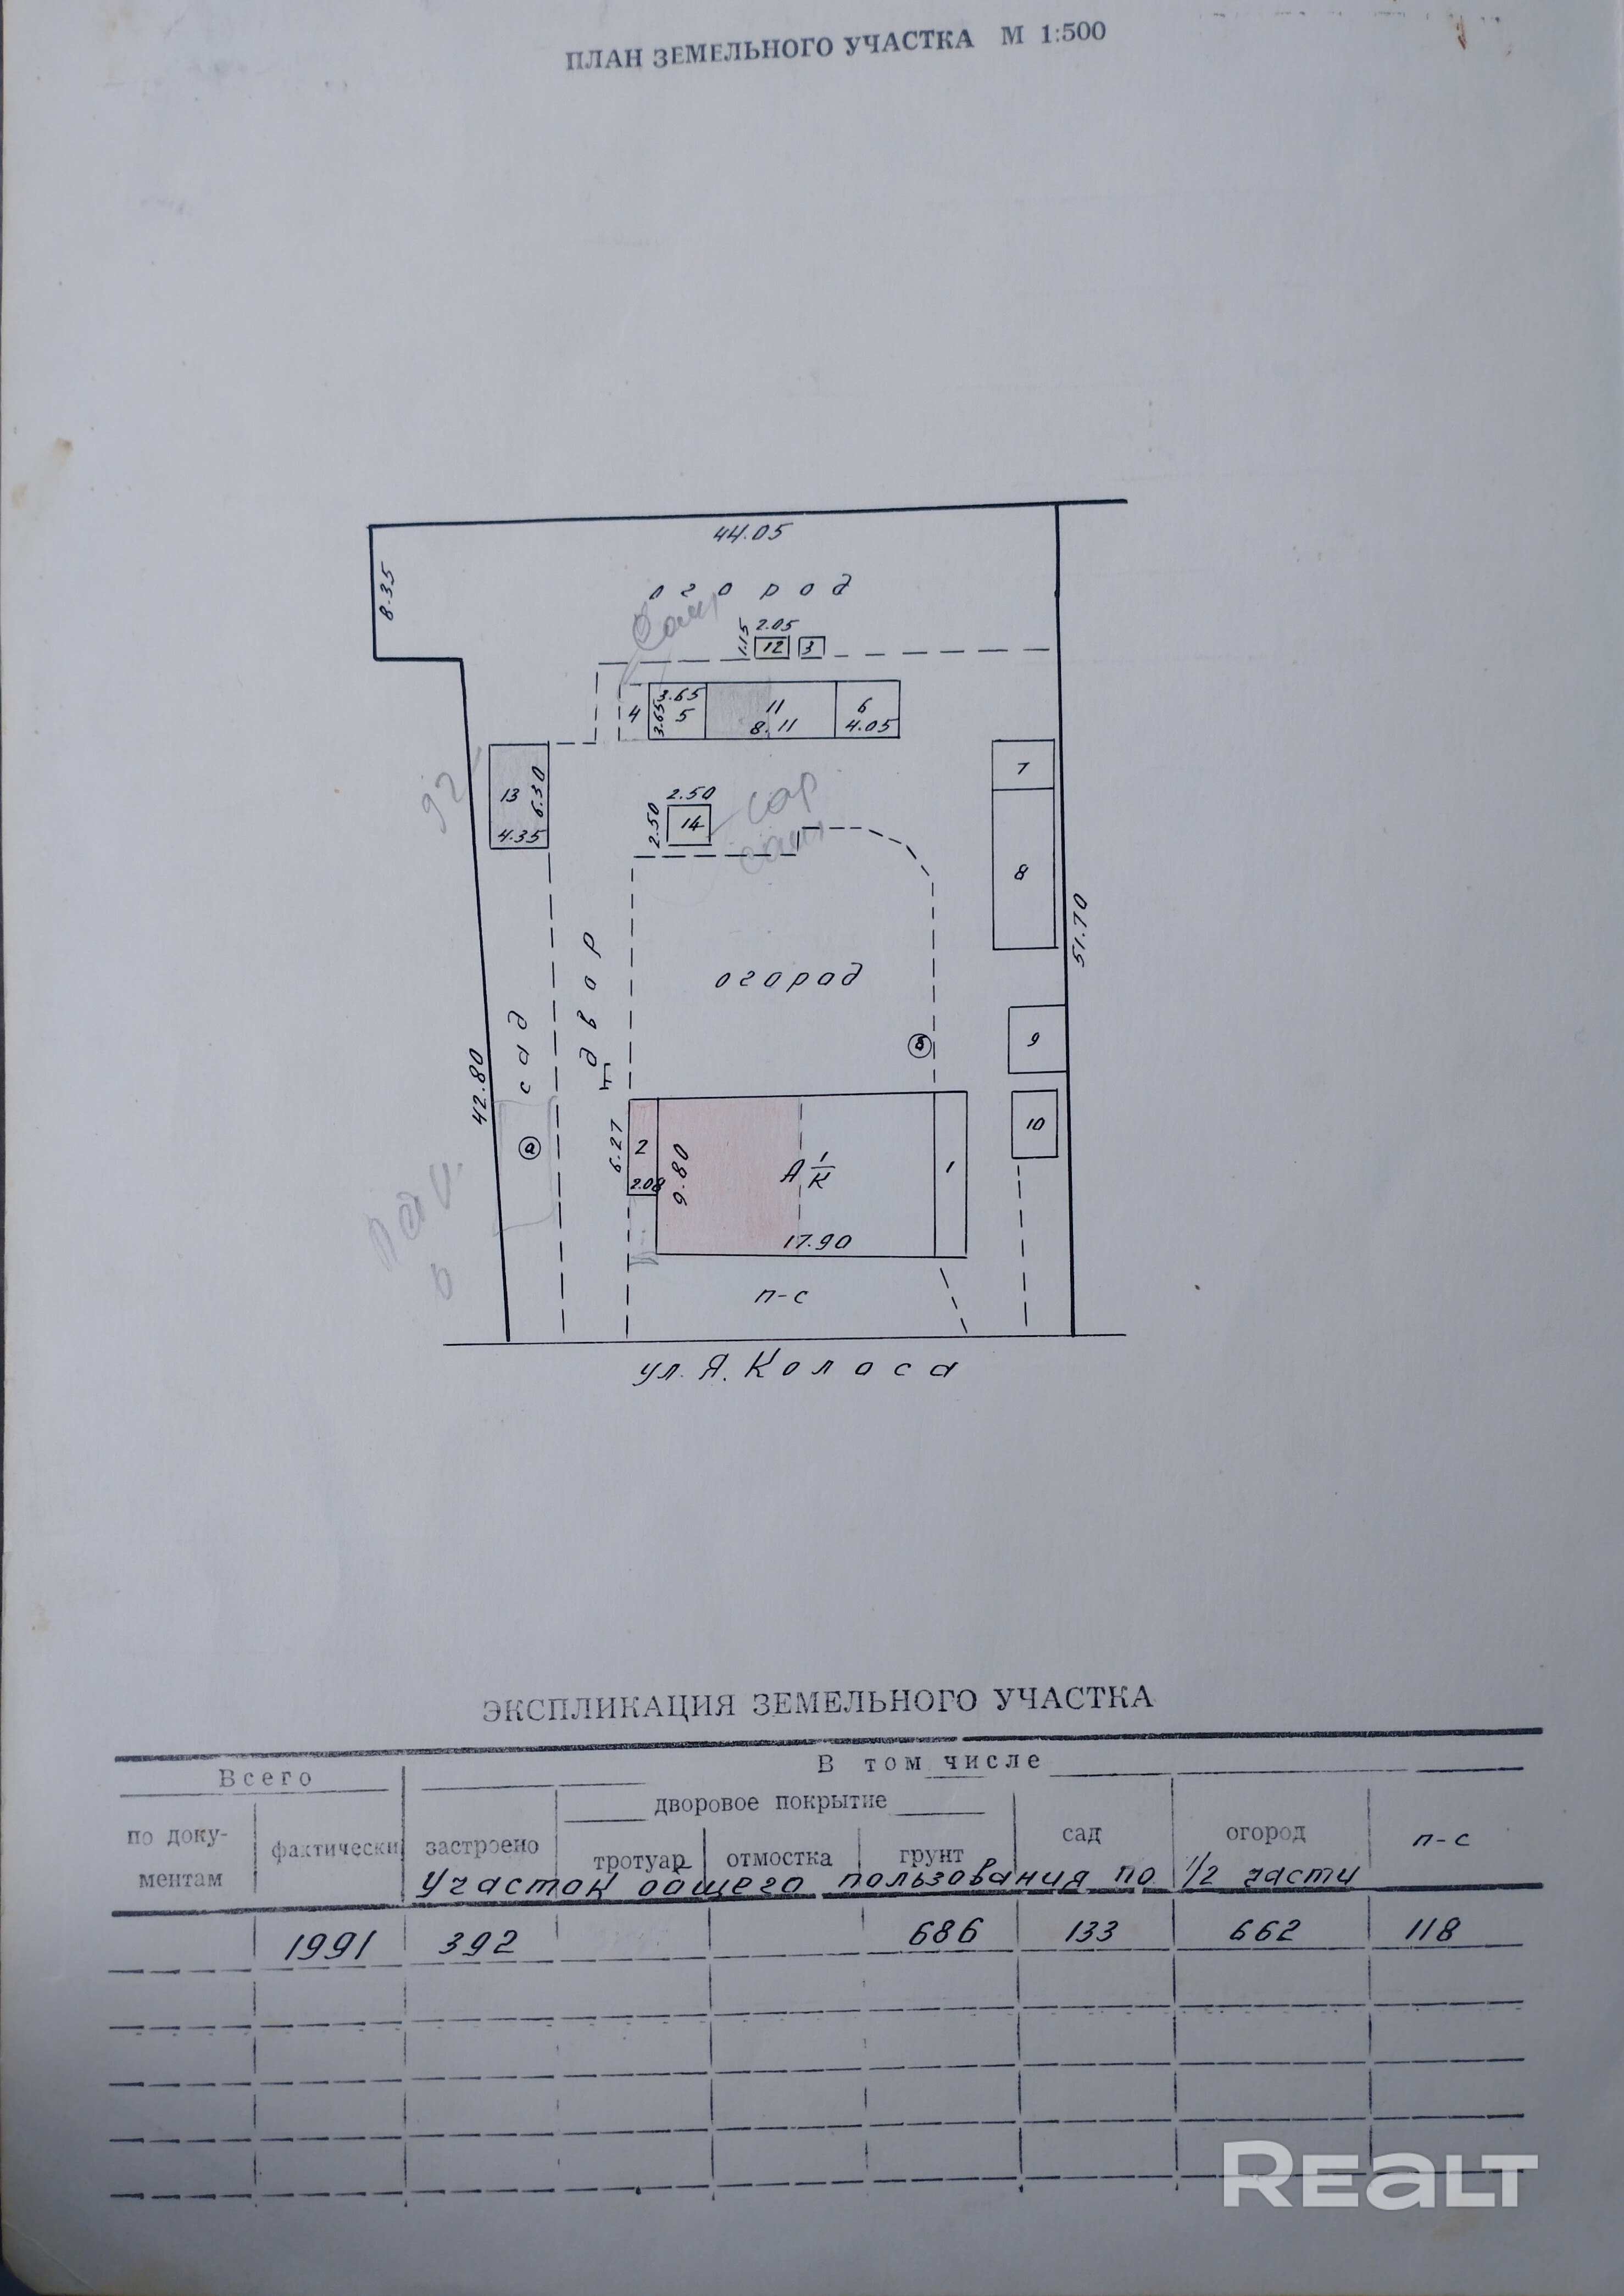 ПЛАН ЗЕМЕЛЬНОГО УЧАСТКА М 1:500
44.05
8.35
огород
1.15 2.05
12 3
4 3.65 3.65 5 11 8.11 6 4.05
7
13 6.30 4.35
2.50 2.50 14
сар
8
51.70
двор
огорад
сад
в
9
42.80
10
а
6.27 2 2.08 9.80 А 1/К 1
17.90
п-с
ул. Я. Коласа
ЭКСПЛИКАЦИЯ ЗЕМЕЛЬНОГО УЧАСТКА
Всего В том числе
дворовое покрытие
по доку-ментам фактически застроено тротуар отмостка грунт сад огород п-с
Участок общего пользования по 1/2 части
1991 392 686 133 662 118
REALT